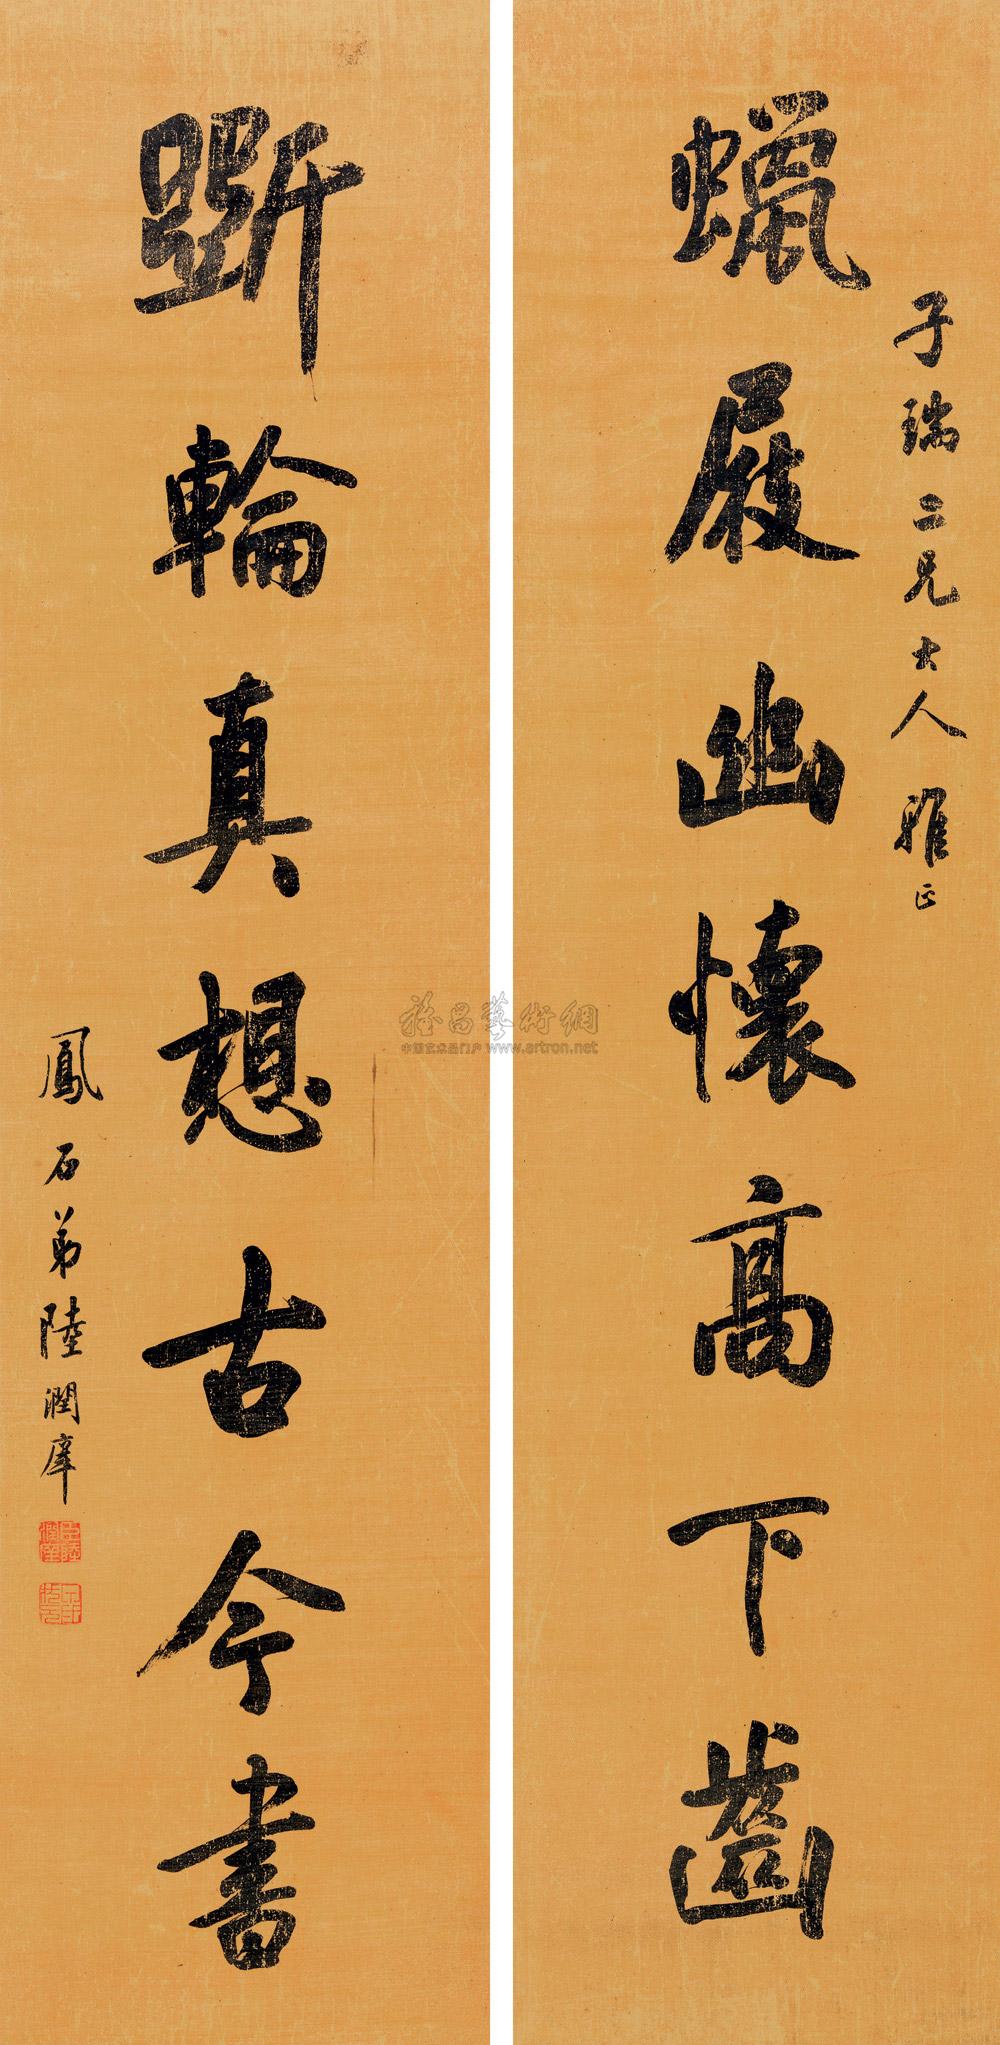 子瑞二兄大人雅正
蠟屐幽懷高下齒
斲輪真想古今書
鳳石弟陸潤庠
雅昌藝術網
中国艺术品门户 www.artron.net